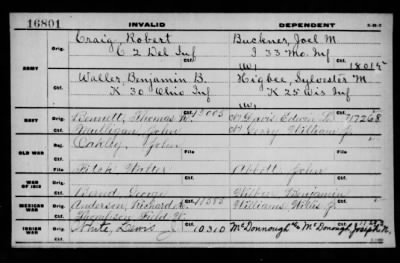 16801 INVALID DEPENDENT
Craig, Robert
Orig. C 2 Del Inf
Ctf.
Buckner, Joel M
I 33 Mo. Inf
18015
ARMY
Waller, Benjamin B.
Orig. K 30 Ohio Inf
Ctf.
Higbee, Sylvester M
K 25 Wis Inf
NAVY
Orig. Bennett, Thomas W.
Ctf. Mulligan John
Davis Edwin
Geary William J.
OLD WAR
Rej. Oakley, John
File
WAR OF 1812
Orig. Fitch Walter
Ctf.
Abbott John
MEXICAN WAR
Bland George
Orig. Anderson, Richard
Ctf. Thompson, Field W.
Wilbur Benjamin
Williams Willis J.
INDIAN WAR
Orig. White, Lewis J 10310
Ctf.
McDonnough McDonough Joseph N.